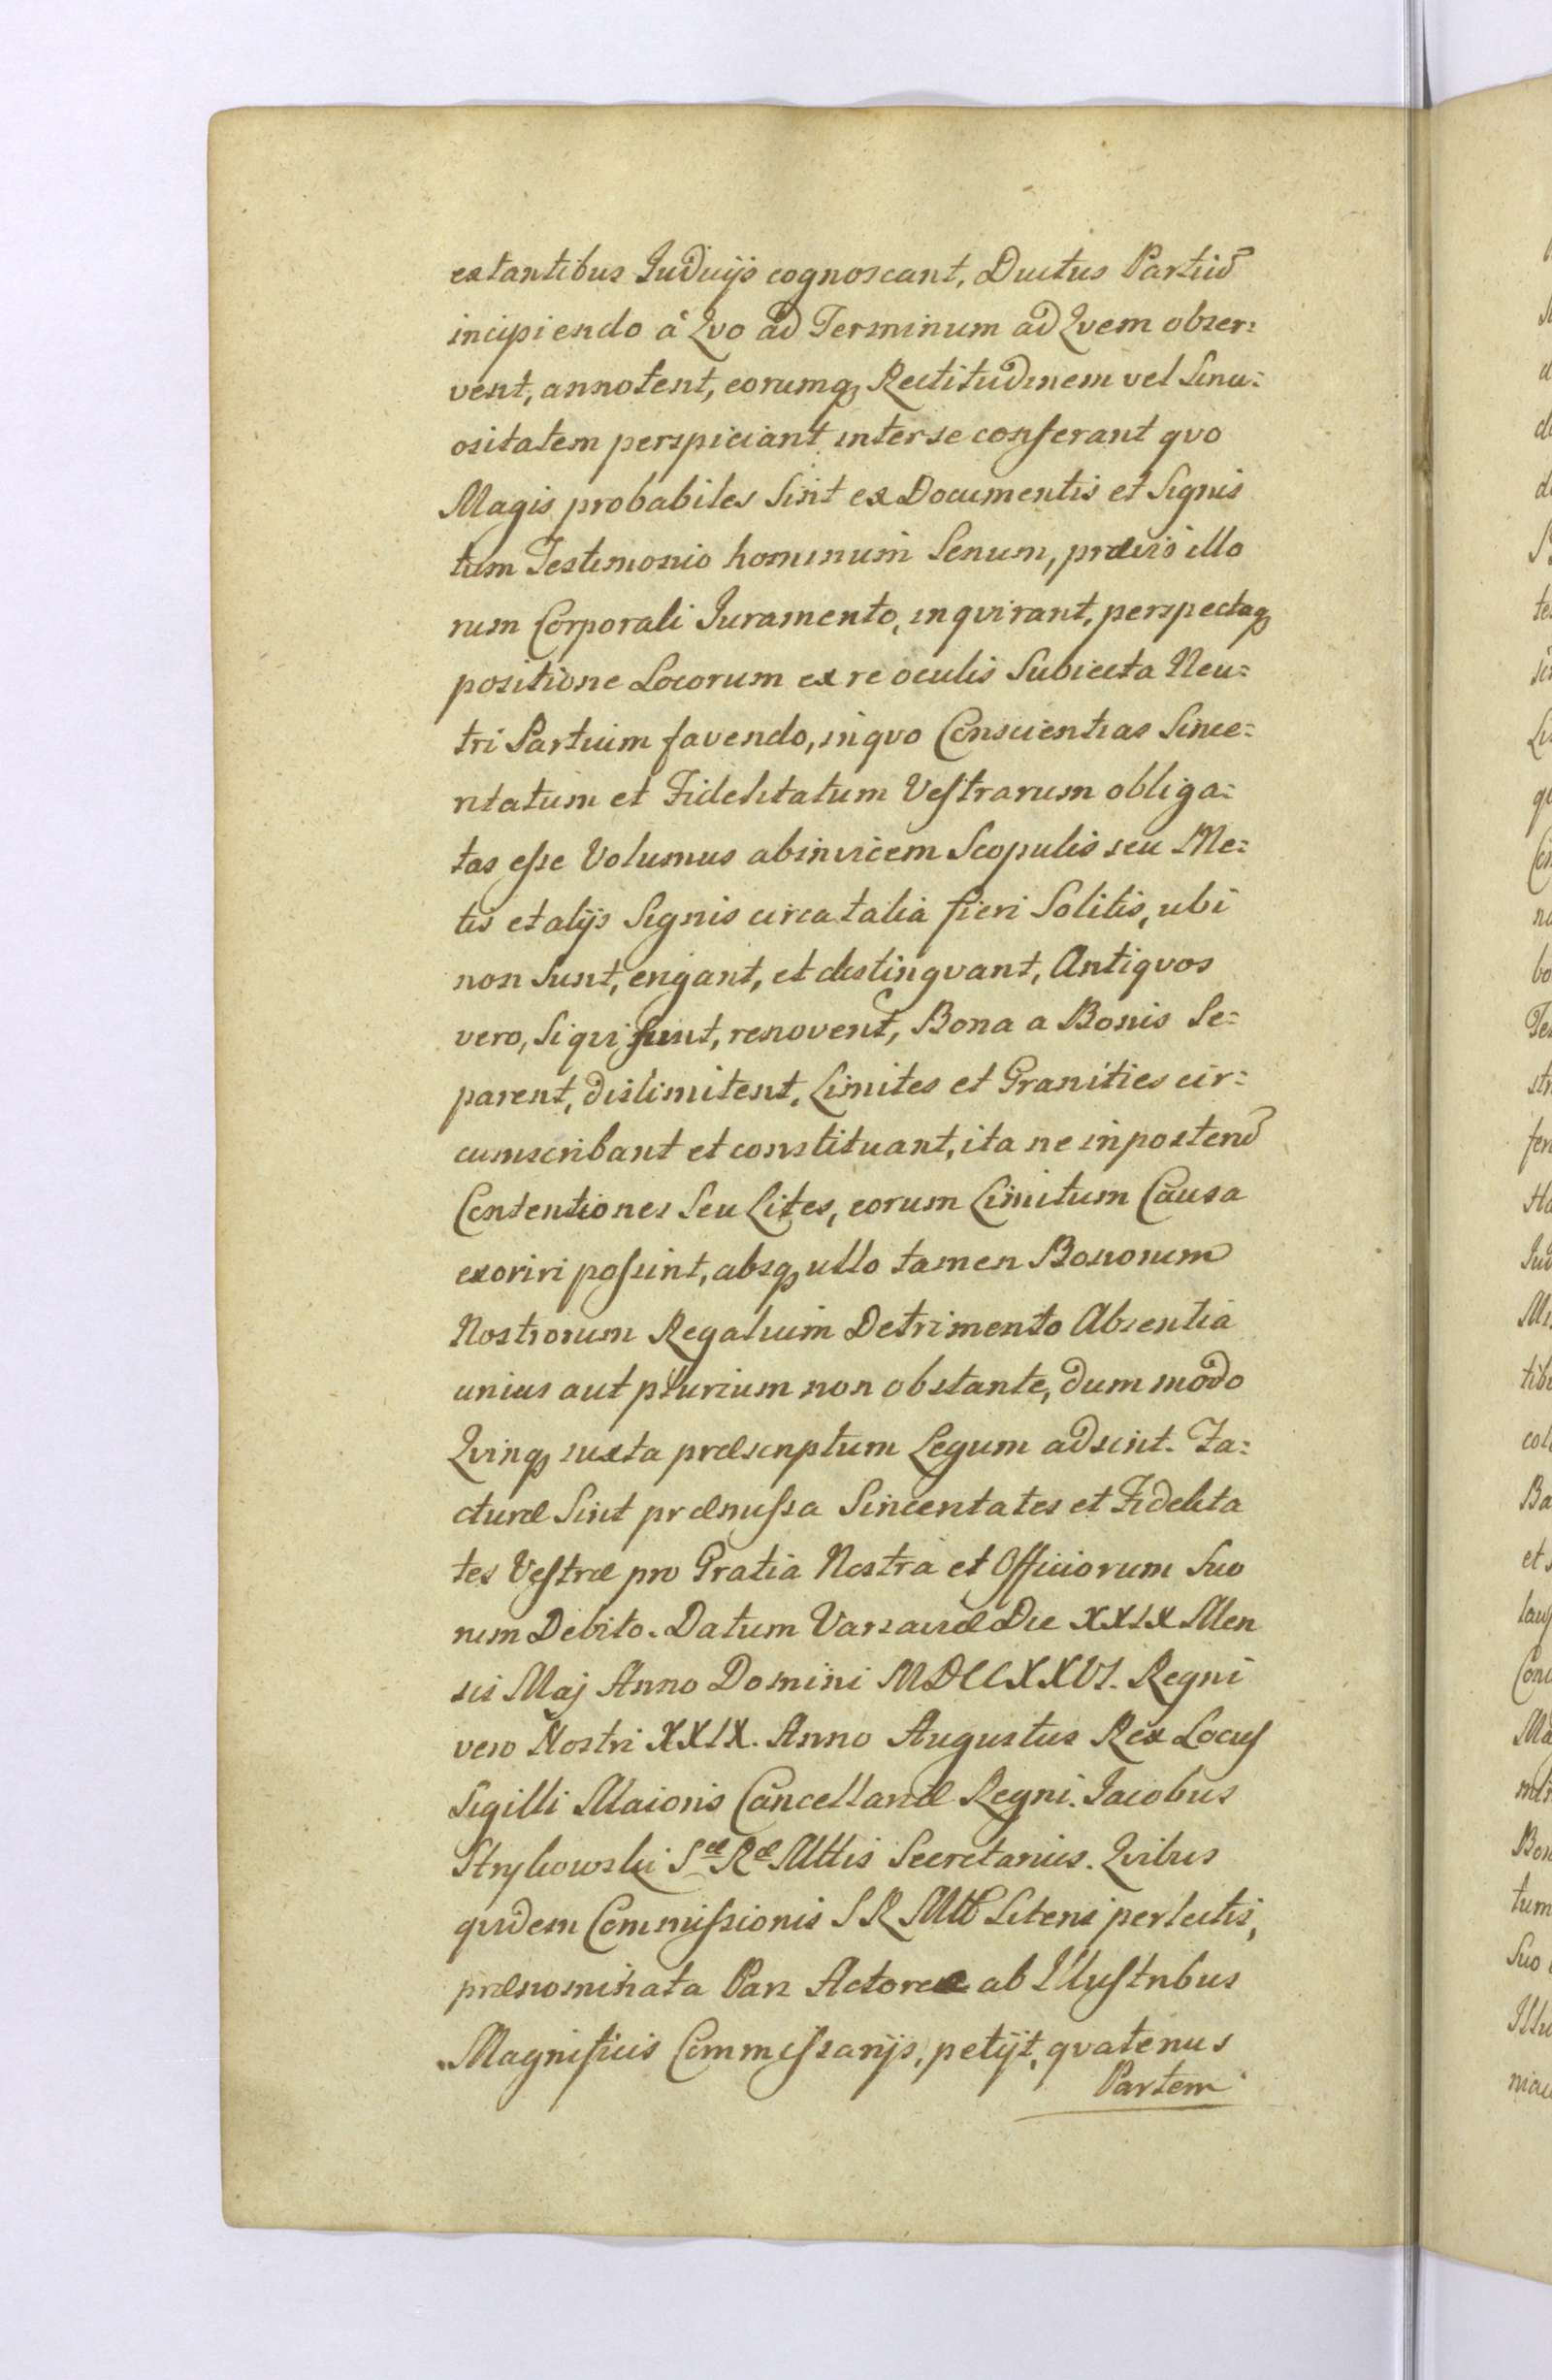 extantibus Judicijs cognoscant, Ductus Partiũ
incipiendo à Qvo ad Terminum ad Qvem obser:
vent, annotent, eorumq₃ Rectitudinem vel Sinu:
ositatem perspiciant inter se conferant qvo
Magis probabiles Sint ex Documentis et Signis
tum Testimonio hominum Senum, prævio illo
rum Corporali Juramento, inqvirant, perspectaq₃
positione Locorum ex re oculis Subiecta Neu:
tri Partium favendo, in qvo Conscientias Since:
ritatum et Fidelitatum Vestrarum obliga:
tas esse Volumus ab invicem Scopulis seu Me:
tis et alijs Signis circa talia fieri Solitis, ubi
non Sunt, erigant, et distingvant, Antiqvos
vero, Si qvi sunt, renovent, Bona a Bonis Se:
parent, dislimitent, Limites et Granities cir:
cumscribant et constituant, ita ne in posterũ
Contentiones Seu Lites, eorum Limitum Causa
exoriri possint, absq₃ ullo tamen Bonorum
Nostrorum Regalium Detrimento Absentia
unius aut plurium non obstante, dum modo
Qvinq₃ iuxta præscriptum Legum adsint. Fa:
cturæ Sint præmissa Sinceritates et Fidelita
tes Vestræ pro Gratia Nostra et Officiorum Suo
rum Debito. Datum Varsaviæ Die XXIX Men
sis Maj Anno Domini MDCCXXVI. Regni
vero Nostri XXIX. Anno Augustus Rex Locus
Sigilli Maioris Cancellariæ Regni. Jacobus
Strykowski Sæ Ræ Mttis Secretarius. Qvibus
qvidem Commissionis S R Mtt Literis perlectis,
prænominata Pars Actorea ab Illustribus
Magnificis Commissarijs, petijt, qvatenus
Partem